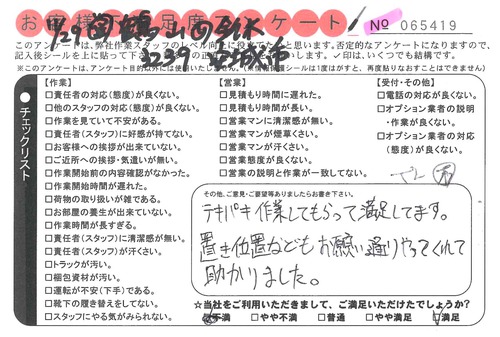 お客様満足度アンケート No 065419
このアンケートは、弊社作業スタッフのレベル向上に役立てたいと思います。否定的なアンケートになりますので、
※このアンケートは、アンケート目的以外には使いたしません。(個人情報保護シールは1度はがすと、再度貼りなおすことはできません)
チェックリスト
【作業】
□責任者の対応(態度)が良くない。
□他のスタッフの対応(態度)が良くない。
□作業を見ていて不安がある。
□責任者(スタッフ)に好感が持てない。
□お客様への挨拶が出来ていない。
□ご近所への挨拶・気遣いが無い。
□作業開始前の内容確認がなかった。
□作業開始時間が遅れた。
□荷物の取り扱いが雑である。
□お部屋の養生が出来ていない。
□作業時間が長すぎる。
□責任者(スタッフ)に清潔感が無い。
□責任者(スタッフ)が汗くさい。
□トラックが汚い。
□梱包資材が汚い。
□運転が不安(下手)である。
□靴下の履き替えをしてない。
□スタッフにやる気がみられない。
【営業】
□見積もり時間に遅れた。
□見積もり時間が長い。
□営業マンに清潔感が無い。
□営業マンが煙草くさい。
□営業マンが汗くさい。
□営業態度が良くない。
□営業の説明と作業が一致してない。
【受付・その他】
□電話の対応が良くない。
□オプション業者の説明
・作業が良くない。
□オプション業者の対応
(態度)が良くない。
その他、ご意見・ご要望等ありましたらお書き下さい。
テキパキ作業してもらって満足してます。
置き位置などもお願い通りやってくれて
助かりました。
☆当社をご利用いただきまして、ご満足いただけたでしょうか?
□不満 □やや不満 □普通 □やや満足 □満足